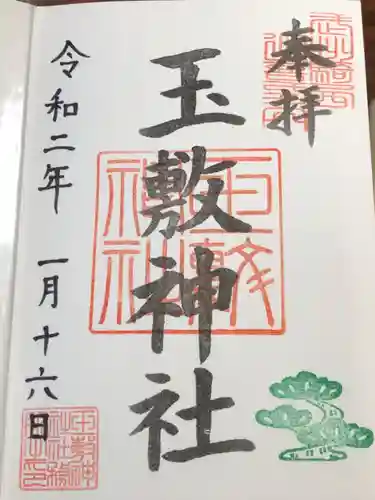 奉拝
玉敷神社
令和二年 一月十六日
玉敷神社